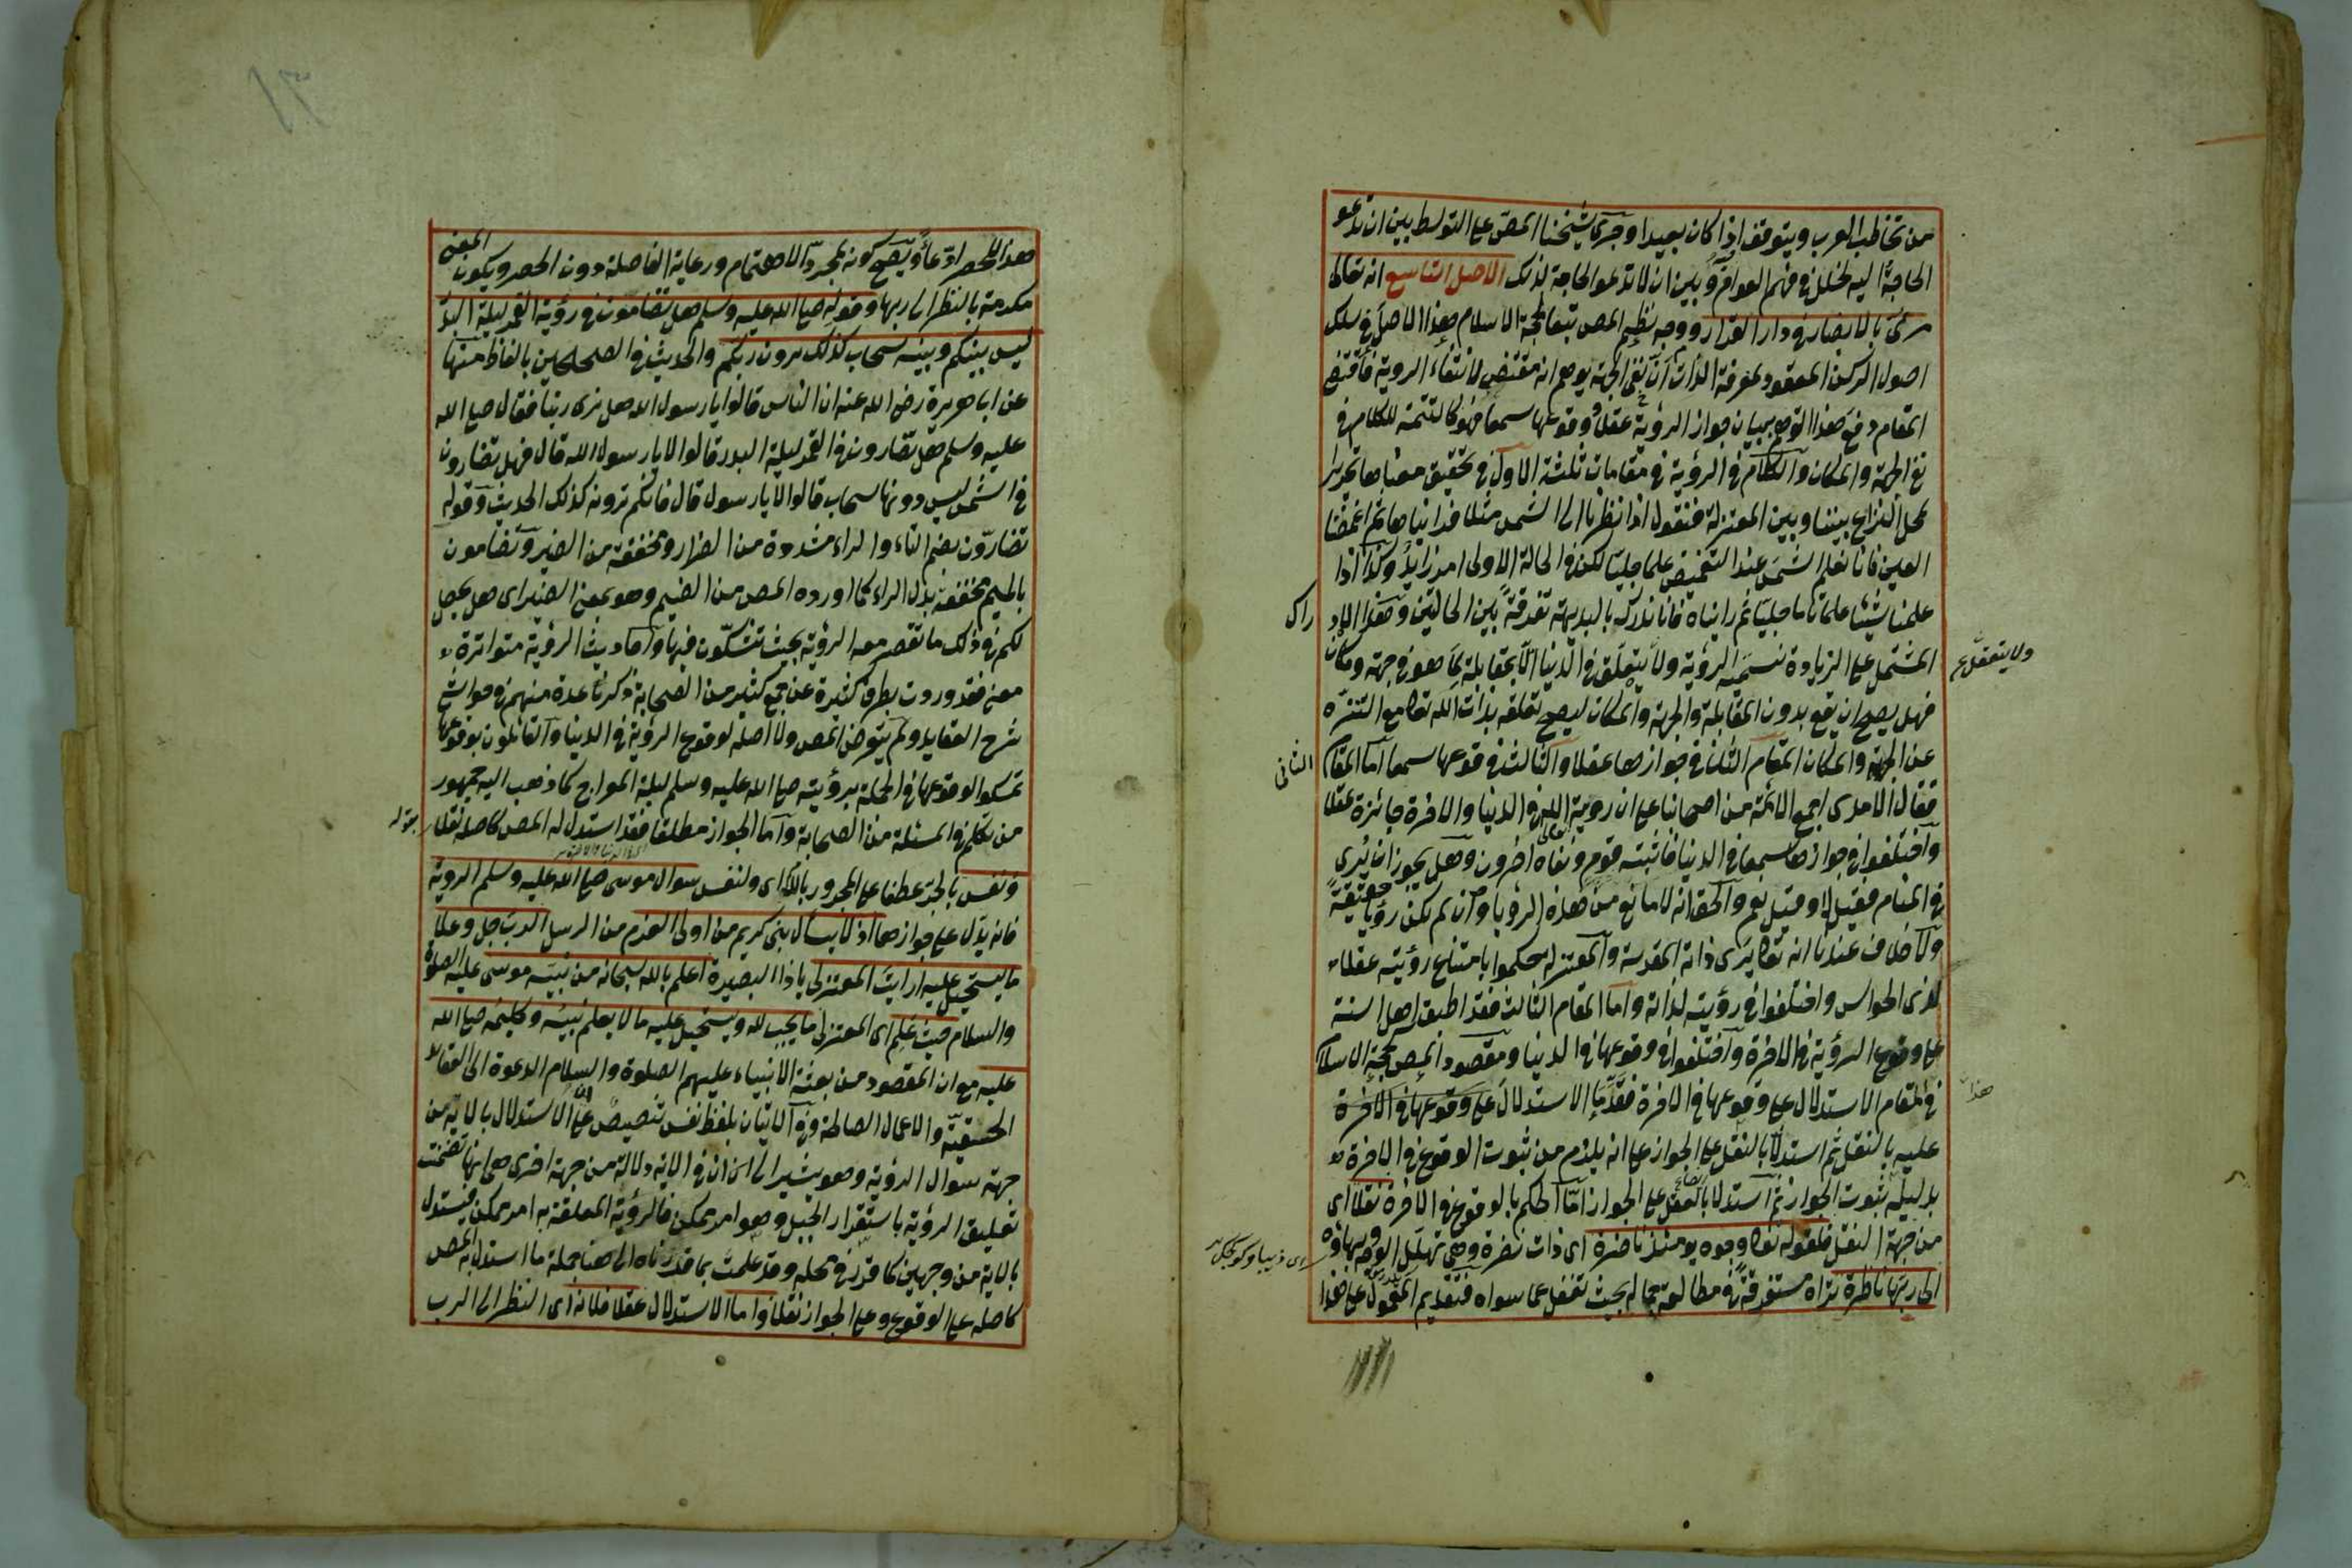 من تخاطب العرب ويتوقف اذا كان بعيدا وجرى شيخنا المص على التوسط بين ان تدعو
الحاجة اليه لخلل في فهم العوام وبين ان لا تدعو الحاجة لذلك الاصل التاسع انه تعالى
مرئى بالابصار في دار القرار ووجه نظم المص تبعا لحجة الاسلام هذا الاصل في سلك
اصول الركن المعقود لمعرفة الذات ان نفى الجهة يوهم انه مقتض لانتفاء الروية فاقتضى
المقام دفع هذا التوهم ببيان جواز الرؤية عقلا ووقوعها سمعا فهو كالتتمة للكلام في
نفي الجهة والمكان والكلام في الرؤية في مقامات ثلثة الاول في تحقيق معناها تحرير
محل النزاع بيننا وبين المعتزلة فنقول اذا نظرنا الى الشمس مثلا فرايناها ثم اغمضنا
العين فانا نعلم الشمس عند التغميض علما جليا لكن في الحالة الاولى امر زايد وكذا اذا
علمنا شيئا علما تاما جليا ثم رايناه فانا ندرك بالبديهة تفرقة بين الحالتين وهذا الاد
راك
المشتمل على الزيادة نسميه الرؤية ولا يتعلق في الدنيا الا بمقابلة لما هو في جهة ومكان
ولا يتعقل
فهل يصح ان يقع بدون المقابلة والجهة والمكان ليصح تعلقه بذات الله تعالى مع التنزه
عن الجهة والمكان المقام الثانى في جوازها عقلا والثالث في وقوعها سمعا اما المقام
الثانى
فقال الامدى اجمع الائمة من اصحابنا على ان روية الله في الدنيا والاخرة جائزة عقلا
واختلفوا في جوازها سمعا في الدنيا فاثبته قوم ونفاه اخرون وهل يجوز ان يرى
في المنام فقيل لا وقيل نعم والحق انه لا مانع من هذه الرؤيا وان لم تكن رؤيا حقيقة
ولا خلاف عندنا انه تعالى يرى ذاته المقدسة والمعتزله حكموا بامتناع رؤيته عقلا
لذى الحواس واختلفوا في رؤيته لذاته واما المقام الثالث فقد اطبق اهل السنة
على وقوع الرؤية في الاخرة واختلفوا في وقوعها في الدنيا ومقصود المص كحجة الاسلام
في المقام الاستدلال على وقوعها في الاخرة فقدما الاستدلال على وقوعها في الاخرة
هذا
عليه بالنقل ثم استدلا بالنقل على الجواز على انه يلزم من ثبوت الوقوع في الاخرة
بدليله ثبوت الجواز ثم استدلا بالعقل على الجواز اما الحكم بالوقوع في الاخرة نقلا اى
من جهة النقل فلقوله تعالى وجوه يومئذ ناضرة اى ذات نضرة وهي تهلل الوجه وبهاؤه
الى ربها ناظرة تراه مستغرقة في مطالعة جماله بحيث تغفل عما سواه فتقديم المعمول على هذا
هذا للحصر ادعاء ويصح كونه لمجرد الاهتمام ورعاية الفاصلة دون الحصر ويكون المعنى
مكرمة بالنظر الى ربها وقوله صلى الله عليه وسلم هل تضامون في رؤية القمر ليلة البدر
ليس بينكم وبينه سحاب كذلك ترون ربكم والحديث في الصحيحين بالفاظ منها
عن ابا هريرة رضى الله عنه ان الناس قالوا يا رسول الله هل نرى ربنا فقال صلى الله
عليه وسلم هل تضارون في القمر ليلة البدر قالوا لا يا رسول الله قال فهل تضارون
في الشمس ليس دونها سحاب قالوا لا يا رسول قال فانكم ترونه كذلك الحديث وقوله
تضارون بضم التاء والراء مشددة من الضرار ومخففة من الضير وتضامون
بالميم مخففة بدل الراء كما اورده المص من الضيم وهو بمعنى الضير اى هل يحصل
لكم في ذلك ما تقصر معه الرؤية بحيث تشكون فيها واحاديث الرؤية متواترة
معنى فقد وردت بطرق كثيرة عن جمع كثير من الصحابة ذكرنا عدة منهم في حواشى
شرح العقايد ولم يتعرض المص ولا اصله لوقوع الرؤية في الدنيا والقائلون بوقوعها
تمسكوا لوقوعها في الجملة برؤيته صلى الله عليه وسلم ليلة المعراج كما ذهب اليه جمهور
من تكلم في المسئلة من الصحابة واما الجواز مطلقا فقد استدل له المص كاصله نقلا
بقوله
ونفس بالجر عطفا على المجرور باللام اى ولنفس سوال موسى صلى الله عليه وسلم الروية
فانه يدل على جوازها اذ لا يسأل نبى كريم من اولى العزم من الرسل الرب جل وعلا
ما يستحيل عليه ارايت المعتزلى يا ذا البصيرة اعلم بالله سبحانه من نبيه موسى عليه الصلوة
والسلام حيث علم اى المعتزلى ما يجب لله ويستحيل عليه ما لا يعلم نبيه وكليمه صلى الله
عليه مع ان المقصود من بعثة الانبياء عليهم الصلوة والسلام الدعوة الى العقائد
الحقية والاعمال الصالحة وفي الاتيان بلفظ نفس تنصيص على ان الاستدلال بالاية من
جهة سوال الرؤية وهو يشير الى ان في الاية دلالة من جهة اخرى هى انها تضمنت
تعليق الرؤية باستقرار الجبل وهو امر ممكن فالرؤية المعلقة به امر ممكن فيستدل
بالاية من وجهين كما قرر في محله وقد علمت بما قدرناه الى هنا جملة ما استدل به المص
كاصله على الوقوع وعلى الجواز نقلا واما الاستدلال عقلا فلانه اى النظر الى الرب